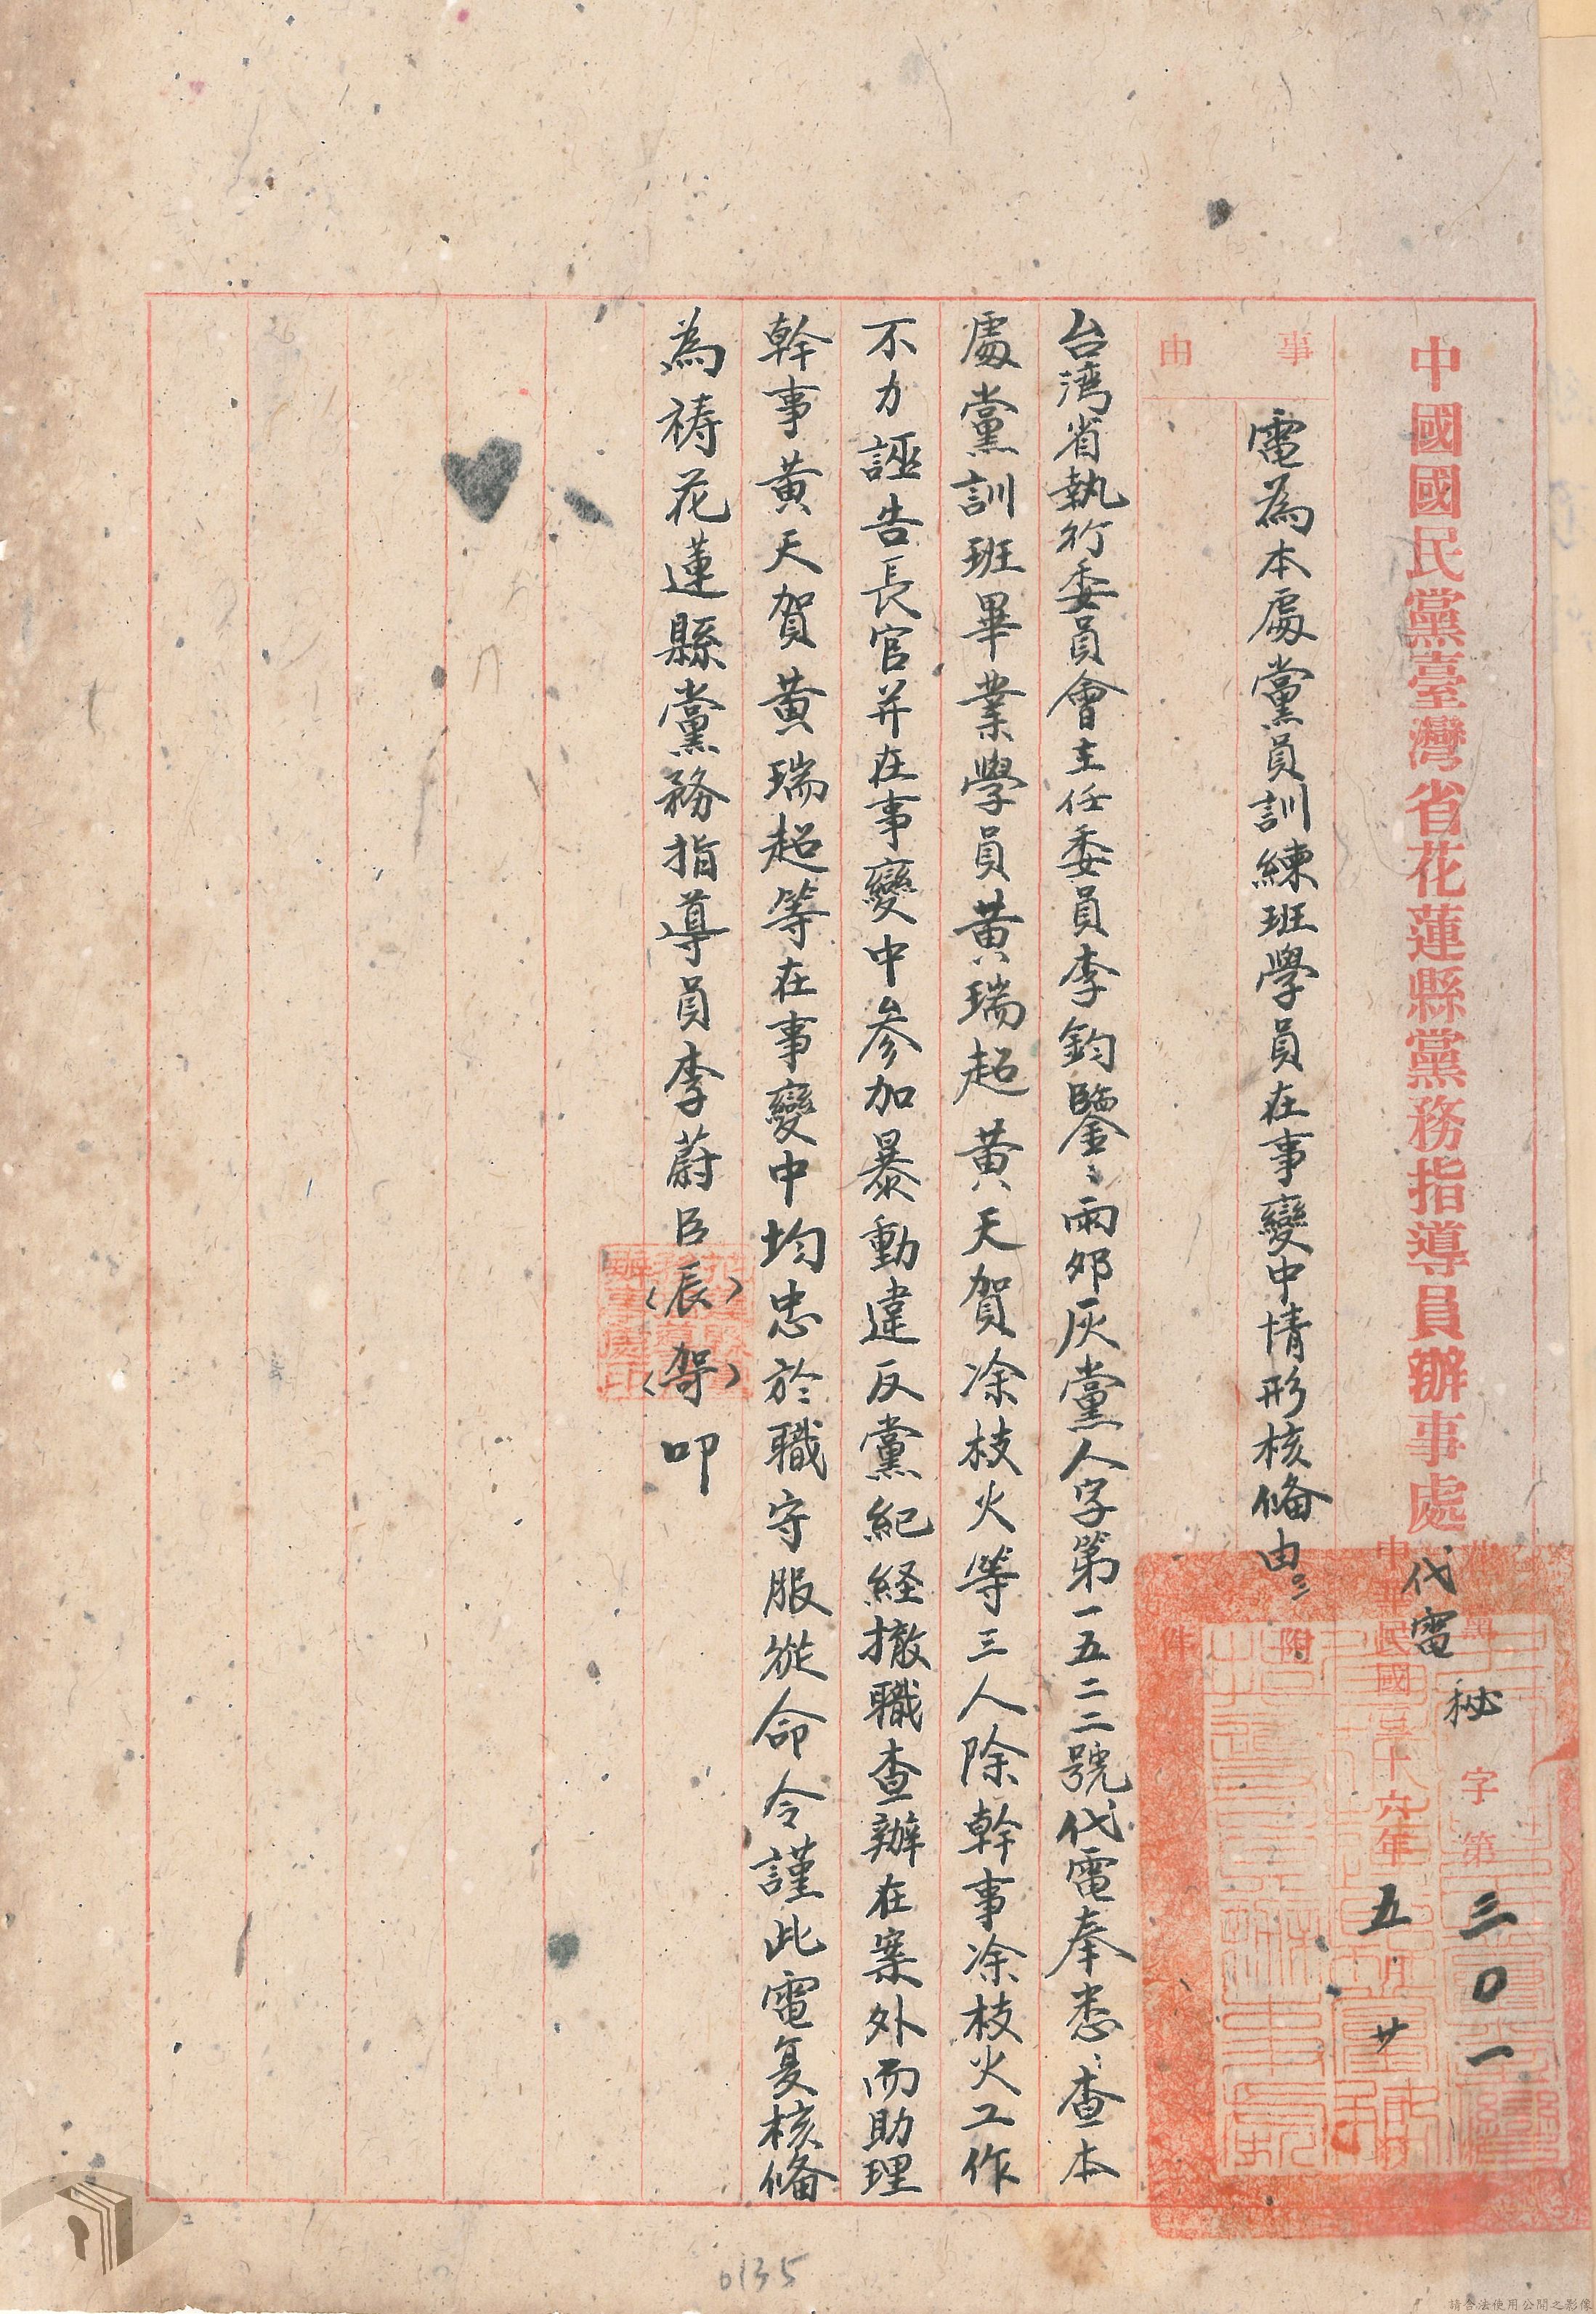 中國國民黨臺灣省花蓮縣黨務指導員辦事處
代電
秘 字第三〇一
中華民國三十六年五月廿
事由
附件
電為本處黨員訓練班學員在事變中情形核備由
台湾省執行委員會主任委員李鈞鑒：兩邜灰黨人字第一五二二號代電奉悉、查本
處黨訓班畢業學員黃瑞超黃天賀凃枝火等三人除幹事凃枝火工作
不力誣告長官并在事變中參加暴動違反黨紀経撤職查辦在案外而助理
幹事黃天賀黃瑞超等在事變中均忠於職守服從命令謹此電复核備
為禱花蓮縣黨務指導員李蔚臣（辰）（哿）叩
26
0135
請合法使用公開之影像